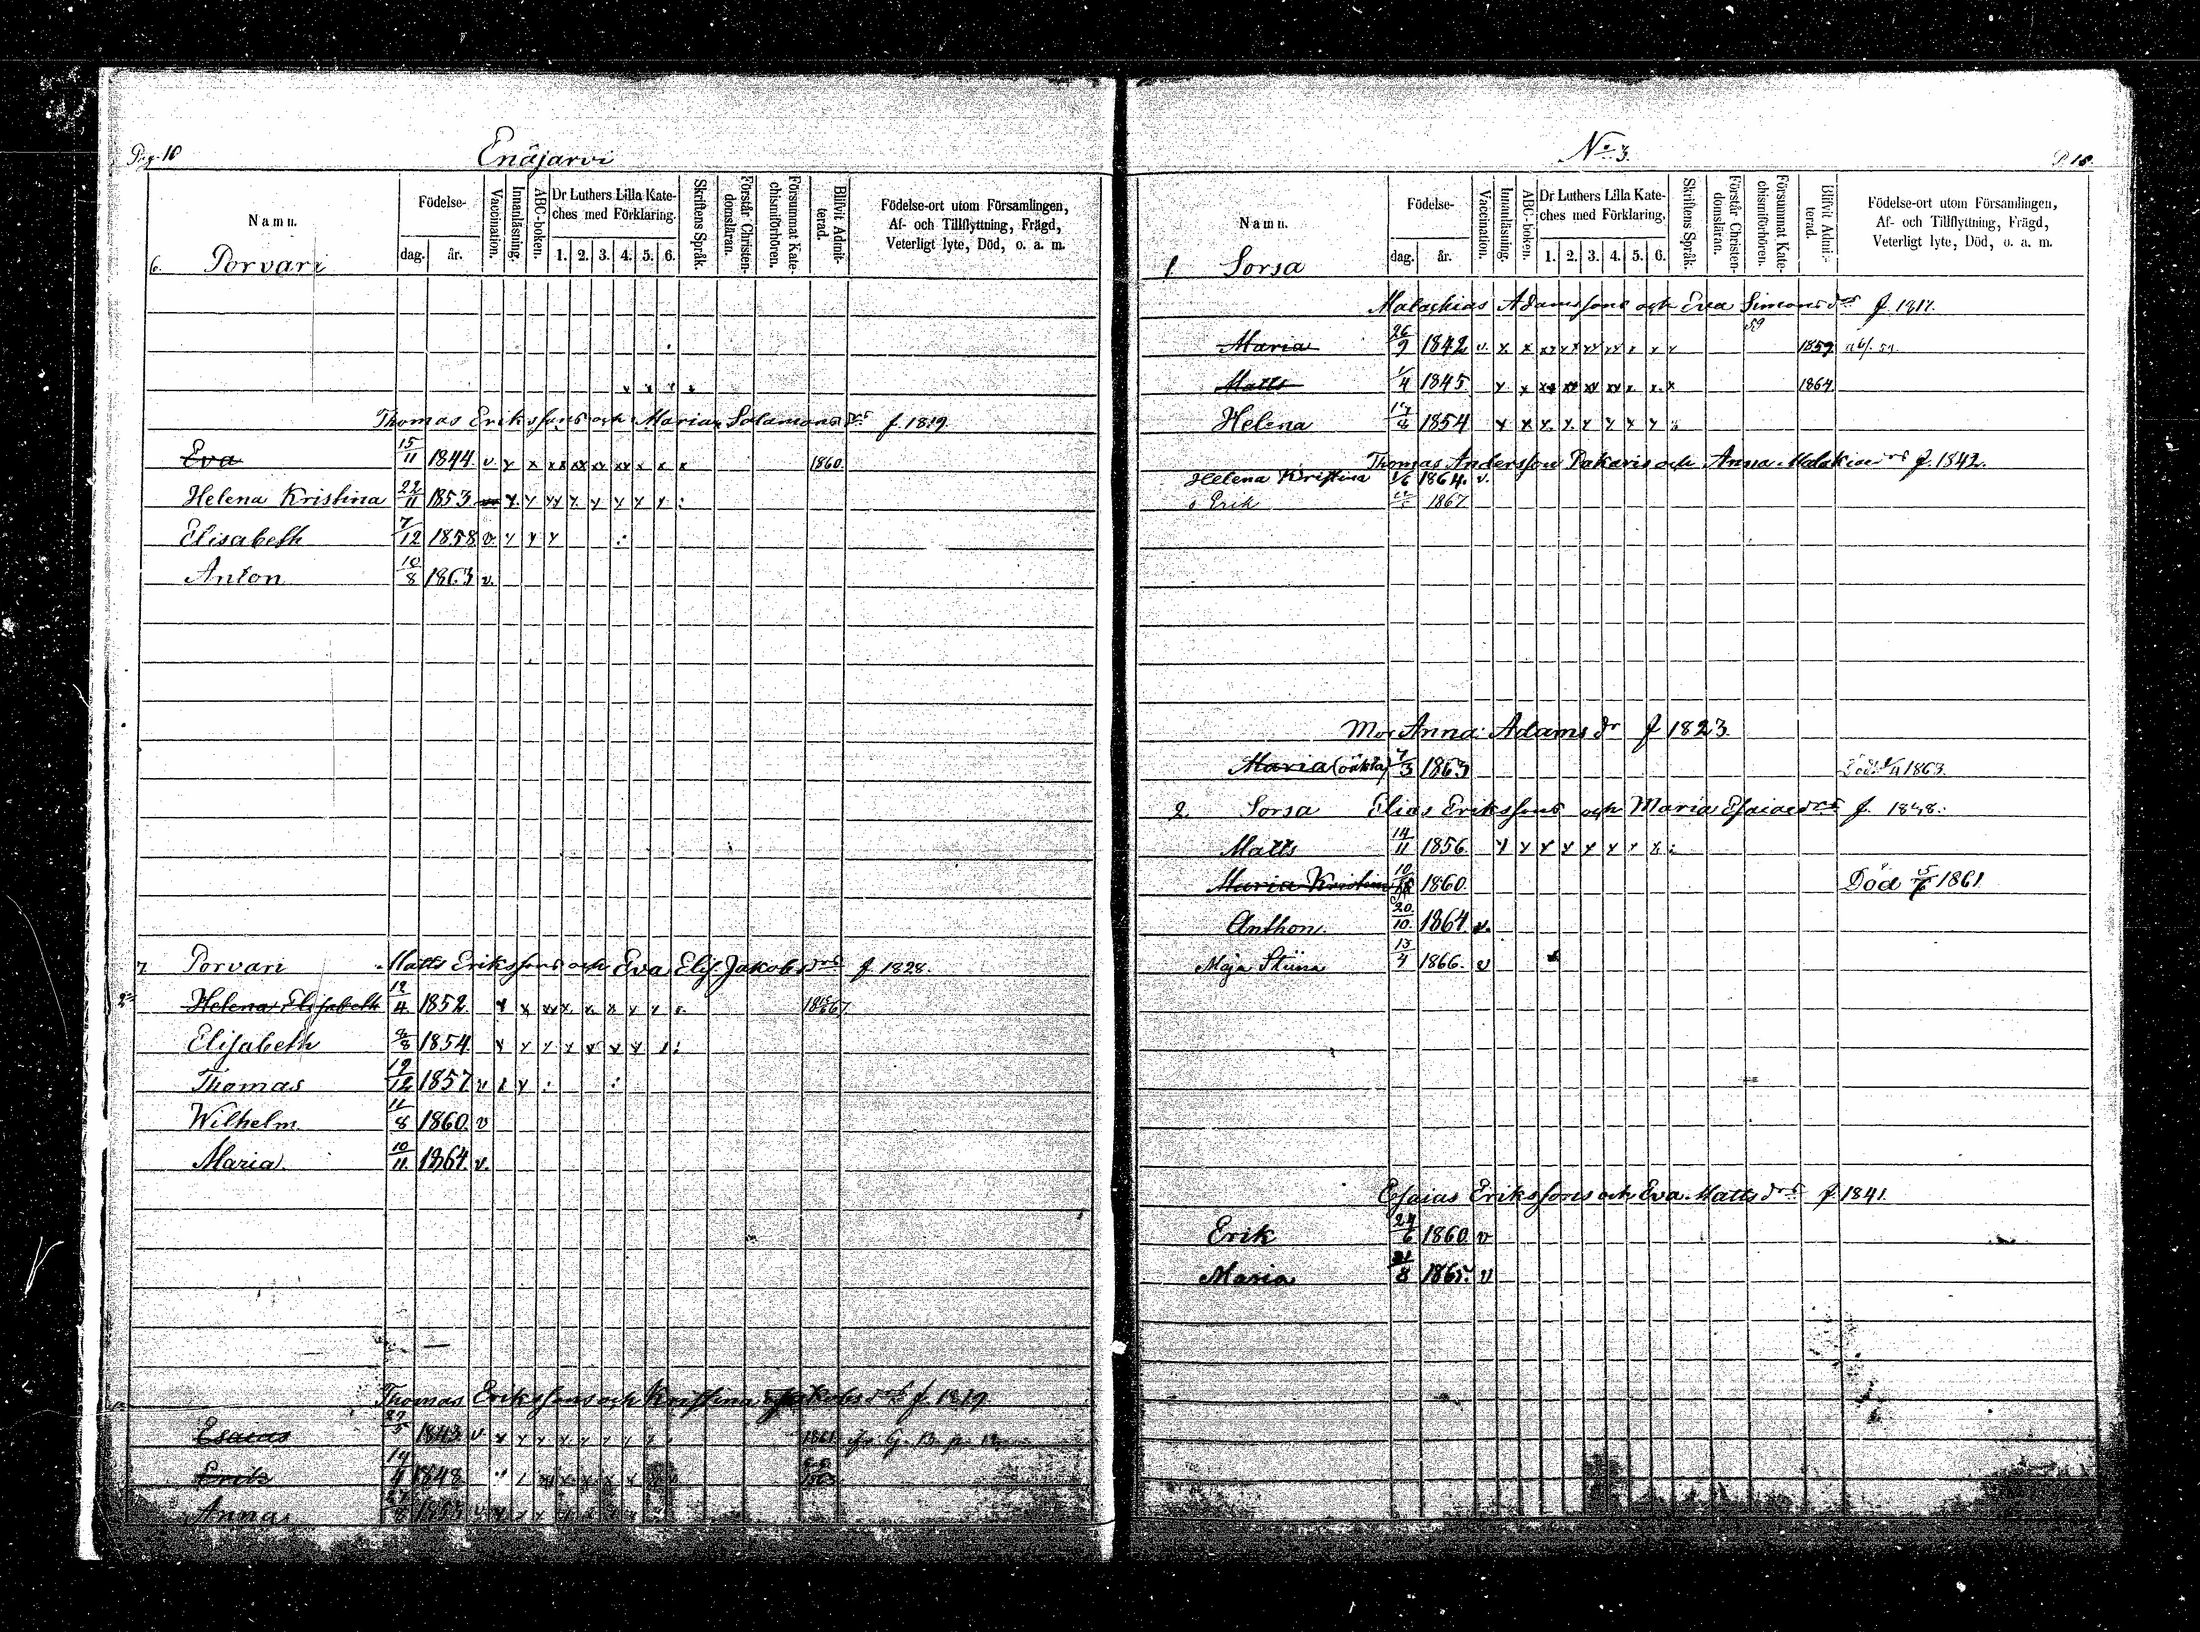 Pag. 18
Enäjärvi
Namn.
Födelse-
dag.
år.
Vaccination.
Innanläsning.
ABC-boken.
Dr Luthers Lilla Kate-
ches med Förklaring.
1. 2. 3. 4. 5. 6.
Skriftens Språk.
Förstår Christen-
domsläran.
Försummat Kate-
chismiförhören.
Blifvit Admit-
terad.
Födelse-ort utom Församlingen,
Af- och Tillflyttning, Frägd,
Veterligt lyte, Död, o. a. m.
6. Porvari
Thomas Erikssons och Maria Salamonsdrs f. 1819.
Eva 15/11 1844 v x x xx xx xx xx x x x 1860.
Helena Kristina 22/11 1853 x x xx x x x x x
Elisabeth 7/12 1858 v x x x
Anton 10/8 1863 v.
7. Porvari Matts Erikssons och Eva Elis. Jakobsdrs f. 1828.
Helena Elisabeth 12/4 1852 x x xx x x x x x
Elisabeth 1854 x x x x x x x x
Thomas 19/12 1857 v x x
Wilhelm 11/8 1860 v
Maria 10/11 1864 v.
Thomas Erikssons och Kristina Jakobsdrs f. 1819.
Esaias 27/5 1843 v x x x x x x x x 1861
Erik 1848
Anna
No 3.
P. 18.
Namn.
Födelse-
dag.
år.
Vaccination.
Innanläsning.
ABC-boken.
Dr Luthers Lilla Kate-
ches med Förklaring.
1. 2. 3. 4. 5. 6.
Skriftens Språk.
Förstår Christen-
domsläran.
Försummat Kate-
chismiförhören.
Blifvit Admit-
terad.
Födelse-ort utom Församlingen,
Af- och Tillflyttning, Frägd,
Veterligt lyte, Död, o. a. m.
1 Sorsa
Malachias Adamssons och Eva Simonsdrs f. 1817.
59
Maria 26/9 1842 v. x x xx xx xx xx x x x 1859
Matts 1/4 1845 x x xx xx xx xx x x x 1864
Helena 1854 x x x x x x x x
Thomas Andersson Pakaris och Anna Malakiaedrs f. 1842.
Helena Kristina 1/6 1864. v.
Erik 1867
Mor Anna Adamsdr f 1823.
Maria (oäkta) 7/3 1863 Död 1863.
2. Sorsa Elias Erikssons och Maria Esaiaedrs f. 1828.
Matts 14/11 1856 x x x x x x x x
Maria Kristina 1860. Död 1861
Anthon 20/10 1864 v.
Maja Stiina 1866. v
Esaias Erikssons och Eva Mattsdrs f 1841.
Erik 1860 v
Maria 1865. v